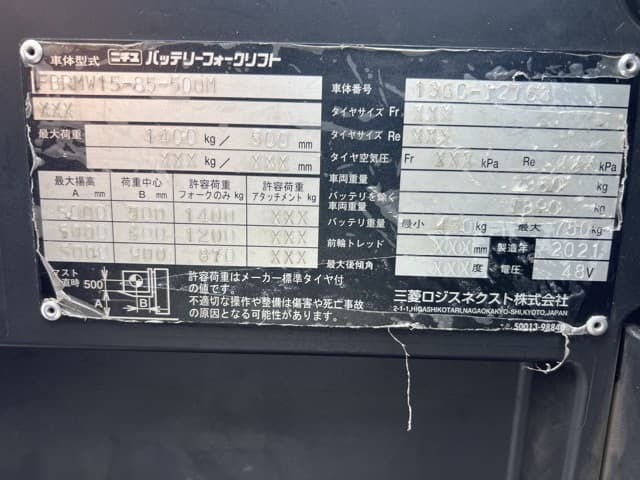 車体型式 ニチユ バッテリーフォークリフト
FBRMW15-85-500M
XXX
最大荷重 1400 kg/ 500 mm
XXX kg/ XXX mm
最大揚高 A mm 荷重中心 B mm 許容荷重 フォークのみ kg 許容荷重 アタッチメント kg
500 1400 XXX
1200 XXX
5000 600 870 XXX
500
A
B
許容荷重はメーカー標準タイヤ付
の値です。
不適切な操作や整備は傷害や死亡事故
の原因となる可能性があります。
車体番号
タイヤサイズ Fr XXX
タイヤサイズ Re XXX
タイヤ空気圧 Fr XXX kPa Re XXX kPa
車両重量
バッテリを除く
車両重量
バッテリ重量 最小 kg 最大 kg
前輪トレッド XXX mm 製造年 2021
最大後傾角 XXX 度 電圧 48 V
三菱ロジスネクスト株式会社
2-1-1,HIGASHIKOTARI,NAGAOKAKYO-SHI,KYOTO,JAPAN